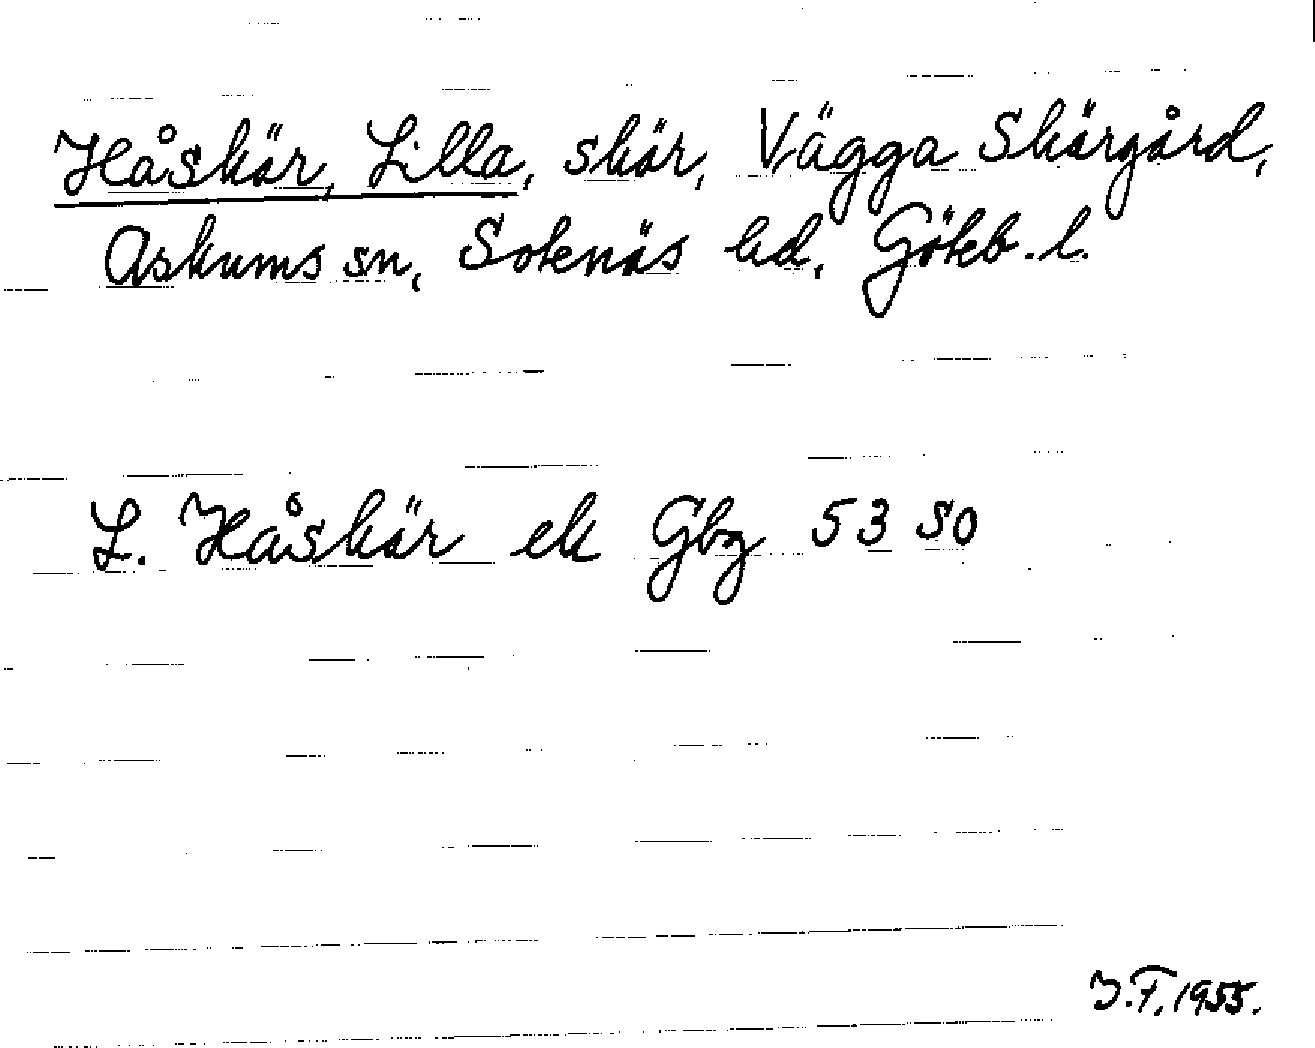 Håskär, Lilla, skär, Vägga Skärgård,
Askums sn, Sotenäs hd, Göteb. l.
L. Håskär ek Gbg 53 SO
J.F. 1955.